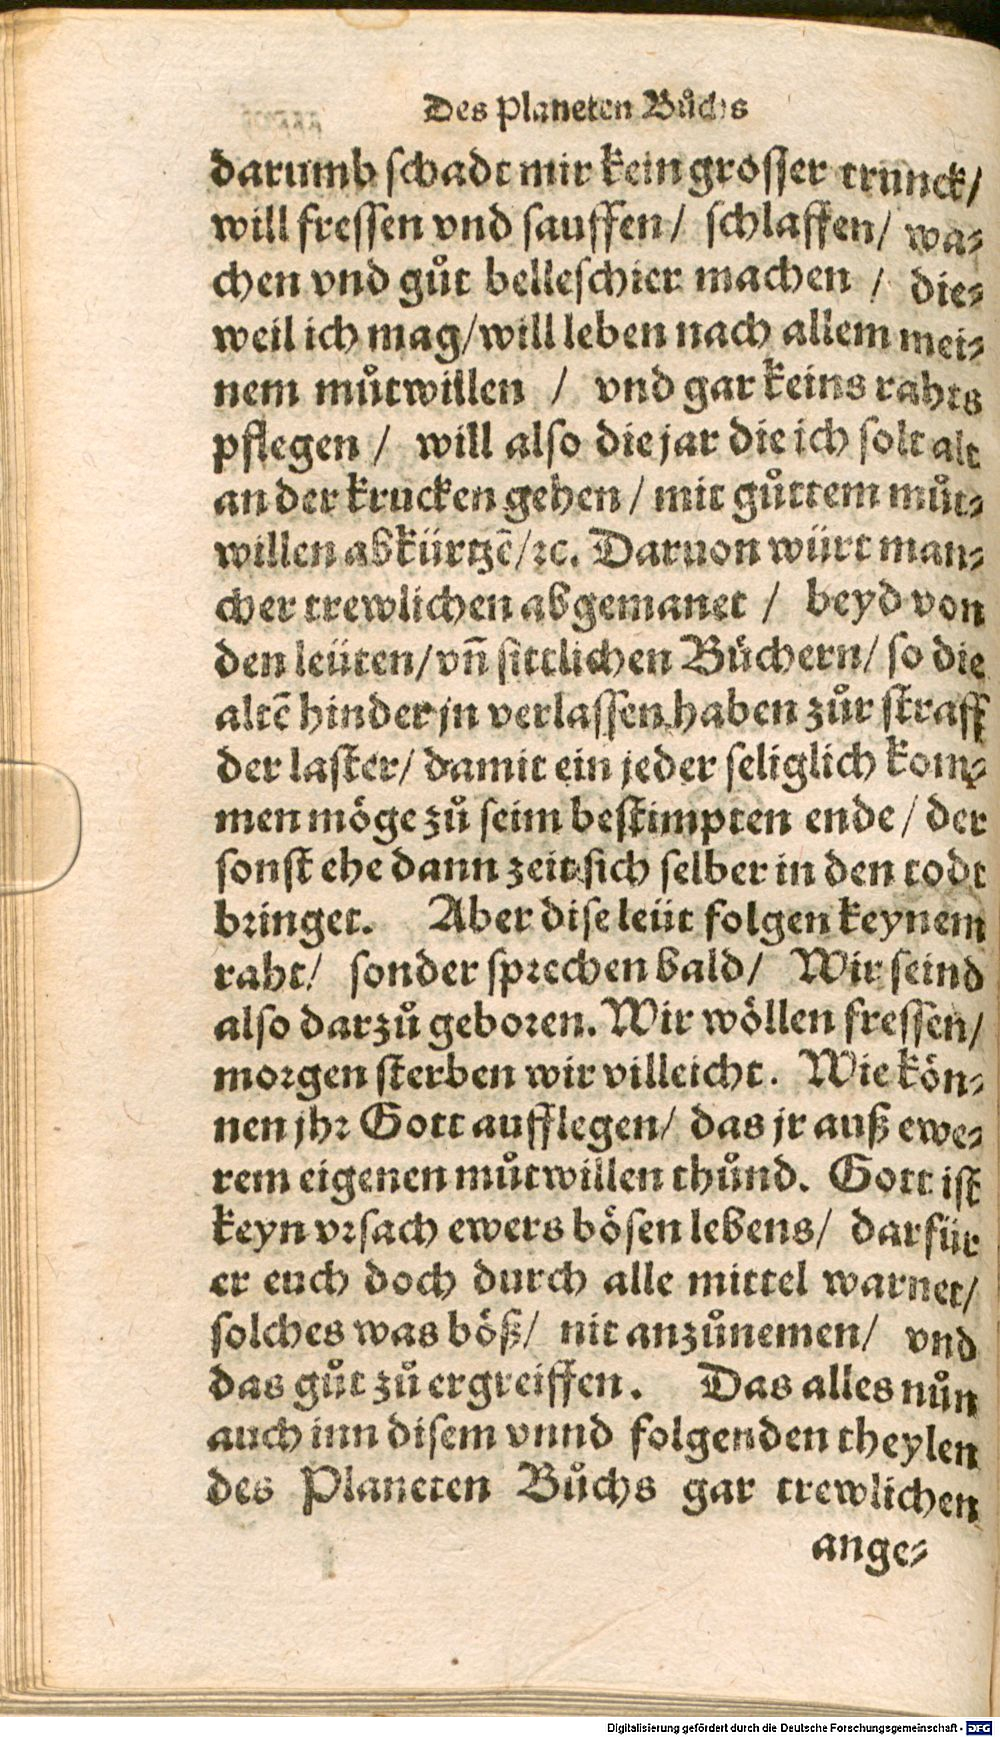 Des Planeten Bůchs
darumb schadt mir kein grosser trunck/
will fressen vnd sauffen/ schlaffen/ wa-
chen vnd gůt belleschier machen / die-
weil ich mag/will leben nach allem mei-
nem můtwillen / vnd gar keins rahts
pflegen / will also die jar die ich solt alt
an der krucken gehen / mit gůttem můt-
willen abkürtzē/ꝛc. Daruon würt man-
cher trewlichen abgemanet / beyd von
den leüten/vñ sittlichen Büchern/ so die
altē hinder jn verlassen haben zůr straff
der laster/ damit ein jeder seliglich kom-
men möge zů seim bestimpten ende/ der
sonst ehe dann zeit sich selber in den todt
bringet. Aber dise leüt folgen keynem
raht/ sonder sprechen bald/ Wir seind
also darzů geboren. Wir wöllen fressen/
morgen sterben wir villeicht. Wie kön-
nen jhr Gott aufflegen/ das jr auß ewe-
rem eigenen můtwillen thůnd. Gott ist
keyn vrsach ewers bösen lebens/ darfür
er euch doch durch alle mittel warnet/
solches was böß/ nit anzůnemen/ vnd
das gůt zů ergreiffen. Das alles nůn
auch inn disem vnnd folgenden theylen
des Planeten Bůchs gar trewlichen
ange-
Digitalisierung gefördert durch die Deutsche Forschungsgemeinschaft - DFG